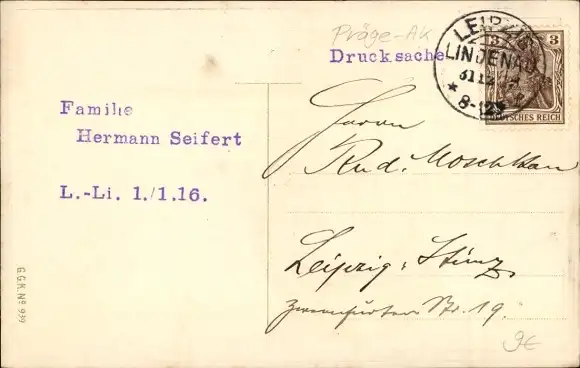 Präge-AK
Drucksache
LEIPZIG
LINDENAU
31.12.
8-12
3 3
DEUTSCHES REICH
Familie
Hermann Seifert
L.-Li. 1./1.16.
Herrn
Rud. Moschkau
Leipzig-Stünz
Str. 19.
9€
G.G.K. Nº 939